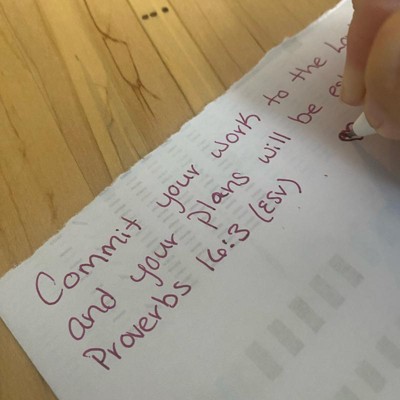 Commit your work to the
and your plans will be
Proverbs 16:3 (ESV)